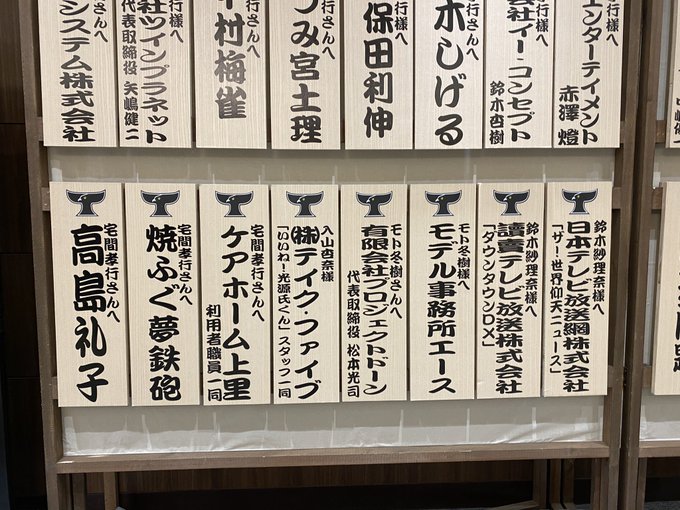 行様へ
エンターテイメント
赤澤 燈
行様へ
会社イー・コンセプト
鈴木杏樹
行さんへ
木しげる
行様へ
保田利伸
行さんへ
つみ宮土理
行さんへ
村梅雀
行様へ
社ツインプラネット
代表取締役 矢嶋健二
行さんへ
システム株式会社
鈴木紗理奈様へ
日本テレビ放送網株式会社
「ザ！世界仰天ニュース」
鈴木紗理奈様へ
讀賣テレビ放送株式会社
「ダウンタウンDX」
モト冬樹様へ
モデル事務所エース
モト冬樹さんへ
有限会社プロジェクトドーン
代表取締役 松本光司
入山杏奈様へ
㈱テイク・ファイブ
「いいね！光源氏くん」スタッフ一同
宅間孝行さんへ
ケアホーム上里
利用者職員一同
宅間孝行さんへ
焼ふぐ夢鉄砲
宅間孝行さんへ
高島礼子